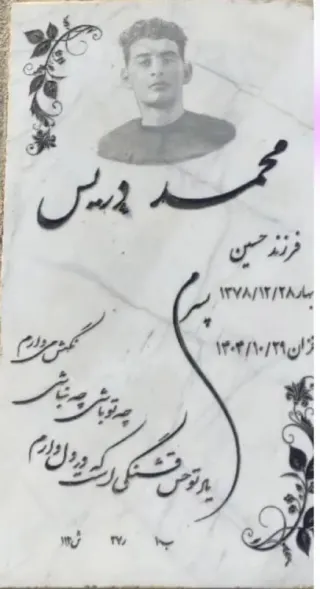 محمد دریس
فرزند حسین
بهار ۱۳۷۸/۱۲/۲۸
خزان ۱۴۰۴/۱۰/۲۹
پسرم
نگهش می‌دارم
چه تو باشی چه نباشی
یاد تو حس قشنگی است که در دل دارم
ب۱ ر۲۷ ش۱۱۴